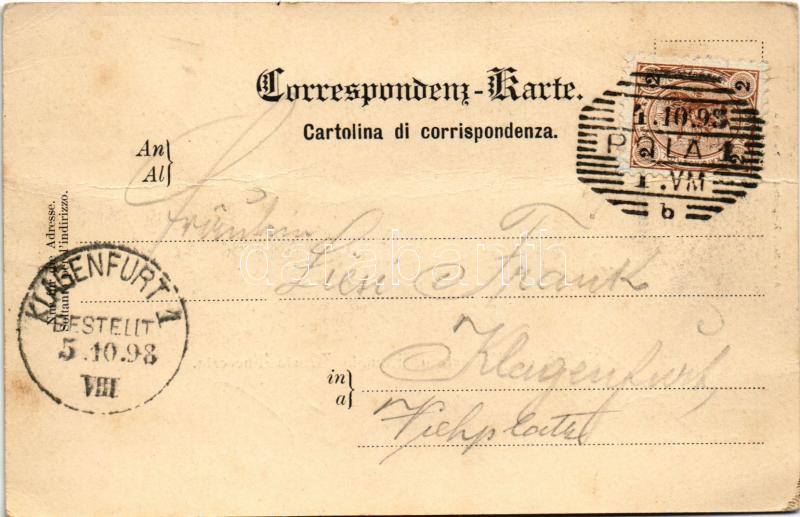 Correspondenz-Karte.
Cartolina di corrispondenza.
An
Al
Fräulein
Liesi Frank
in
a
Klagenfurt,
Viehplatz
Nur für die Adresse.
Soltanto per l'indirizzo.
2
2
2
2
1.10.98
POLA 1
1.VM
b
KLAGENFURT 1
BESTELLT
5.10.98
VIII
darabanth